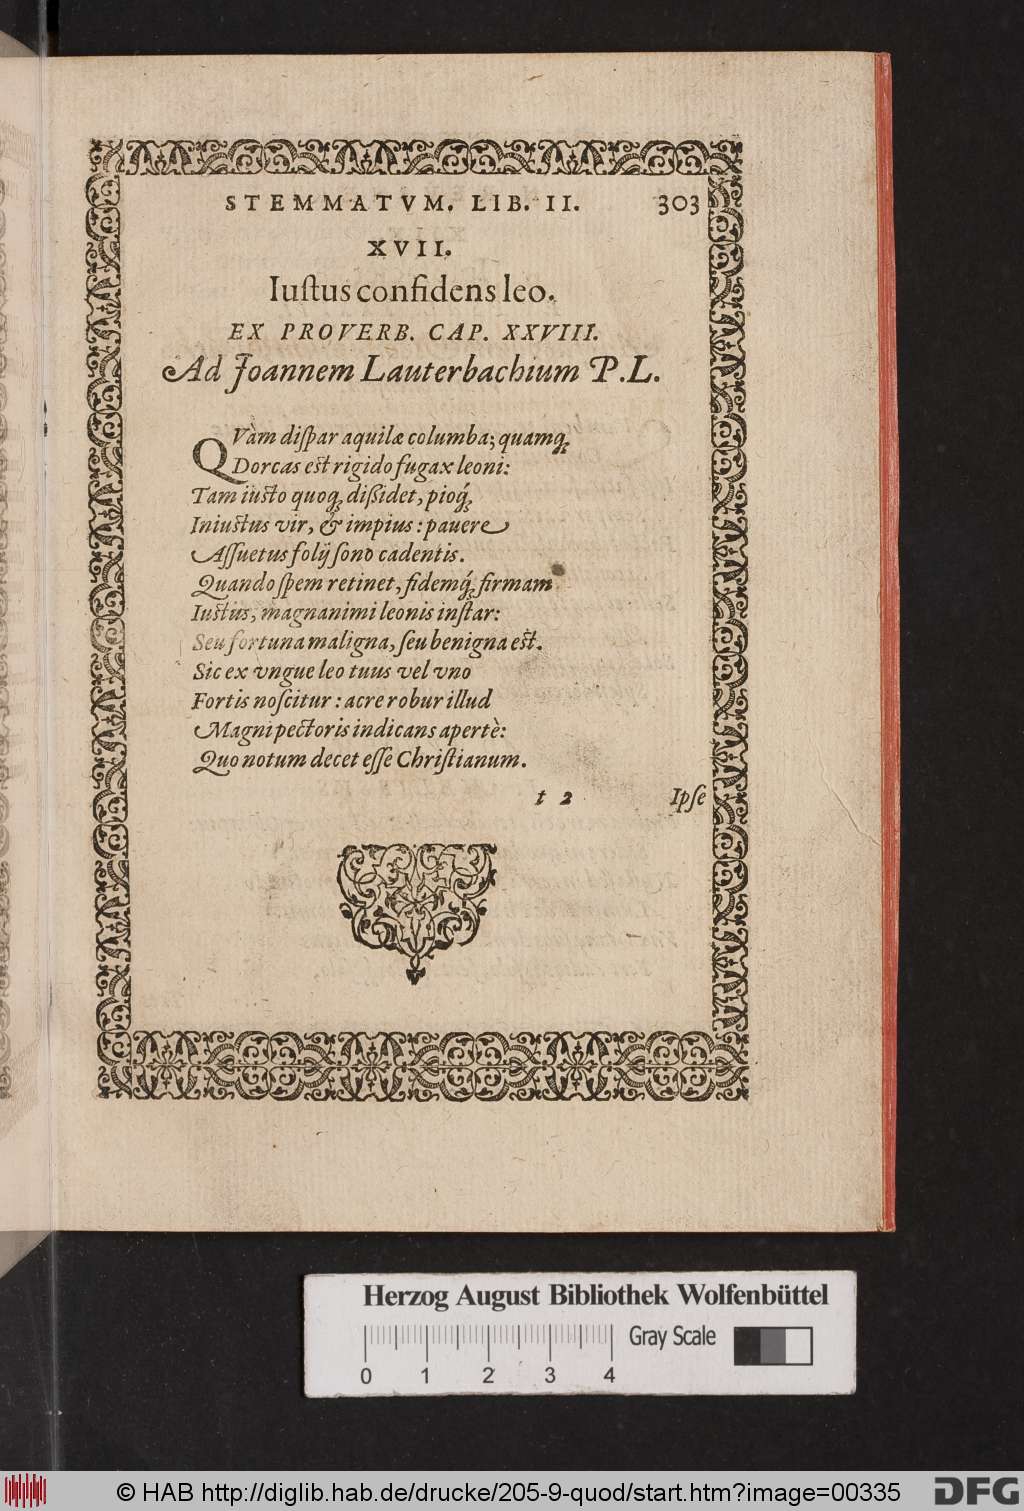 STEMMATVM. LIB. II. 303
XVII.
Iuſtus confidens leo.
EX PROVERB. CAP. XXVIII.
Ad Joannem Lauterbachium P.L.
QVàm diſpar aquilæ columba; quamq́;
Dorcas eſt rigido fugax leoni:
Tam iuſto quoq; dißidet, pioq́;
Iniuſtus vir, & impius: pauere
Aſſuetus folij ſono cadentis.
Quando ſpem retinet, fidemq́; firmam
Iuſtus, magnanimi leonis inſtar:
Seu fortuna maligna, ſeu benigna eſt.
Sic ex vngue leo tuus vel vno
Fortis noſcitur: acre robur illud
Magni pectoris indicans apertè:
Quo notum decet eſſe Chriſtianum.
t 2 Ipſe
Herzog August Bibliothek Wolfenbüttel
Gray Scale
0 1 2 3 4
© HAB http://diglib.hab.de/drucke/205-9-quod/start.htm?image=00335
DFG